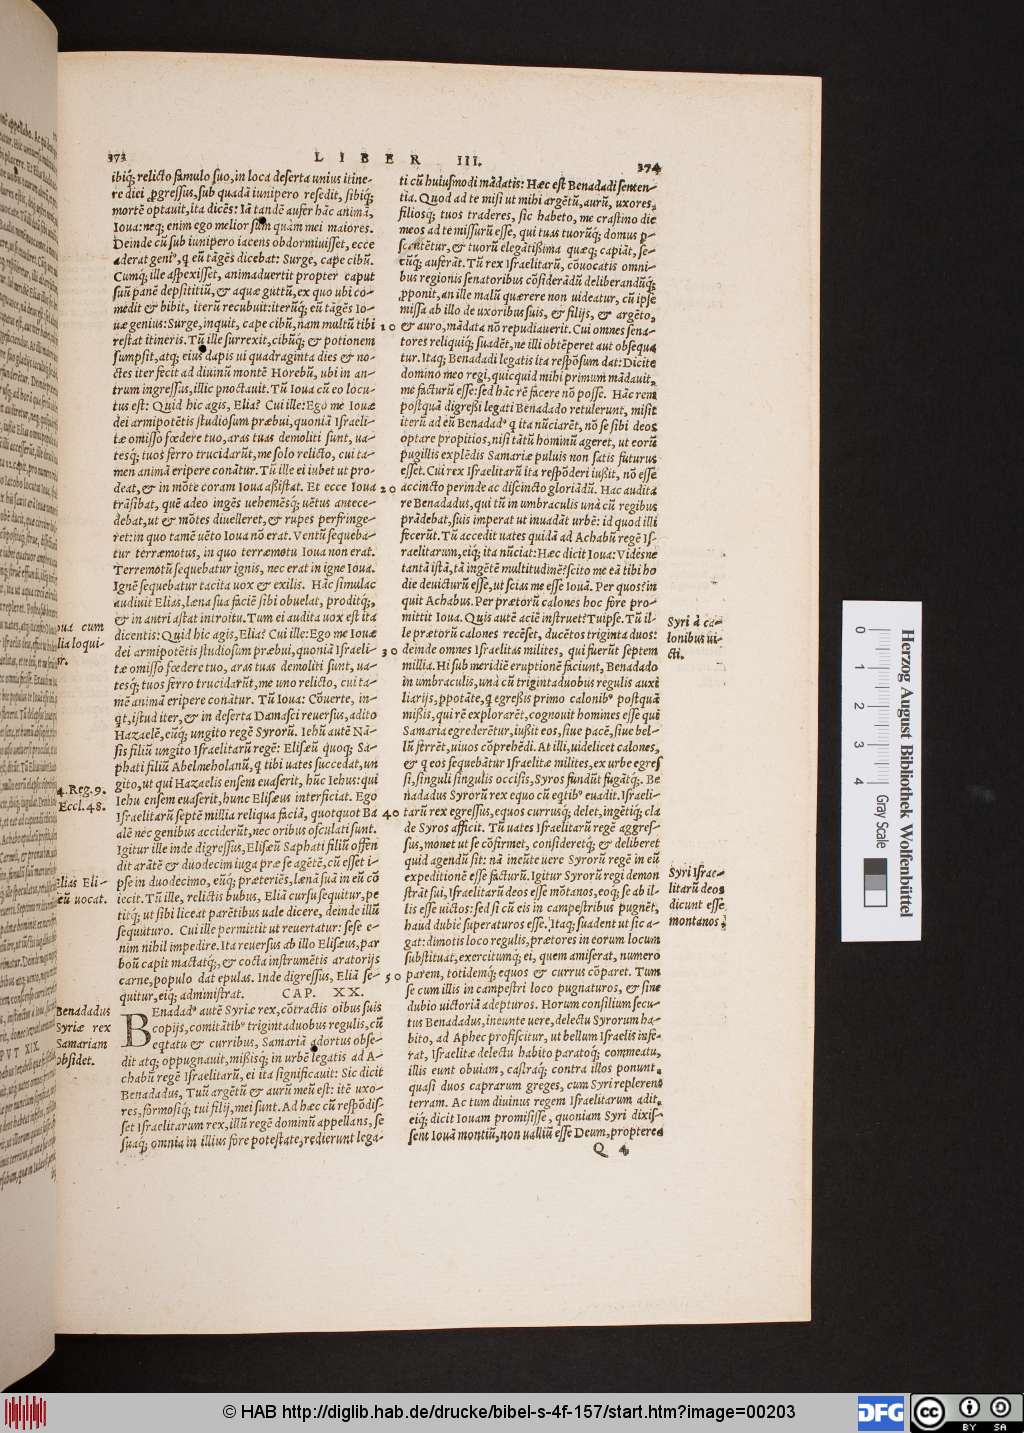 373
LIBER III.
374
ibiq́; relicto famulo suo, in loca deserta unius itine-
re dici ꝓgressus, sub quadā iunipero resedit, sibiq́;
mortē optauit, ita dicēs: Iā tandē aufer hāc animā,
Ioua: neq; enim ego melior sum quàm mei maiores.
Deinde cū sub iunipero iacens obdormiuisset, ecce
aderat geniꝰ, q eū tāgēs dicebat: Surge, cape cibū.
Cumq́; ille aspexisset, animaduertit propter caput
suū panē depsititiū, & aquæ guttū, ex quo ubi co-
medit & bibit, iterū recubuit: iterūq́; eū tāgēs Io-
uæ genius: Surge, inquit, cape cibū, nam multū tibi
restat itineris. Tū ille surrexit, cibūq́; & potionem
sumpsit, atq; eius dapis ui quadraginta dies & no-
ctes iter fecit ad diuinū montē Horebū, ubi in an-
trum ingressus, illic pnoctauit. Tū Ioua cū eo locu-
tus est: Quid hic agis, Elia? Cui ille: Ego me Iouæ
dei armipotētis studiosum præbui, quoniā Israeli-
tæ omisso fœdere tuo, aras tuas demoliti sunt, ua-
tesq́; tuos ferro trucidarūt, me solo relicto, cui ta-
men animā eripere conātur. Tū ille ei iubet ut pro-
deat, & in mōte coram Ioua aßistat. Et ecce Ioua
trāsibat, quē adeo ingēs uehemēsq́; uētus antece-
debat, ut & mōtes diuelleret, & rupes perfringe-
ret: in quo tamē uēto Ioua nō erat. Ventū sequeba-
tur terræmotus, in quo terræmotu Ioua non erat.
Terremotū sequebatur ignis, nec erat in igne Ioua.
Ignē sequebatur tacita uox & exilis. Hāc simulac
audiuit Elias, læna sua faciē sibi obuelat, proditq́;,
& in antri astat introitu. Tum ei audita uox est ita
dicentis: Quid hic agis, Elia? Cui ille: Ego me Iouæ
dei armipotētis studiosum præbui, quoniā Israeli-
tæ omisso fœdere tuo, aras tuas demoliti sunt, ua-
tesq́; tuos ferro trucidarūt, me uno relicto, cui ta-
mē animā eripere conātur. Tū Ioua: Cōuerte, in-
qt, istud iter, & in deserta Damasci reuersus, adito
Hazaelē, eūq́; ungito regē Syrorū. Iehū autē Nā-
sis filiū ungito Israelitarū regē: Elisæū quoq; Sa-
phati filiū Abelmeholanū, q tibi uates succedat, un
gito, ut qui Hazaelis ensem euaserit, hūc Iehus: qui
Iehu ensem euaserit, hunc Elisæus interficiat. Ego
Israelitarū septē millia reliqua faciā, quotquot Ba
alē nec genibus acciderūt, nec oribus osculati sunt.
Igitur ille inde digressus, Elisæū Saphati filiū offen
dit arātē & duodecim iuga præ se agētē, cū esset i-
pse in duodecimo, eūq́; præteriēs, lænā suā in eū cō
iecit. Tū ille, relictis bubus, Eliā cursu sequitur, pe
titq́; ut sibi liceat parētibus uale dicere, deinde illū
sequuturo. Cui ille permittit ut reuertatur: sese e-
nim nihil impedire. Ita reuersus ab illo Elisæus, par
boū capit mactatq́;, & cocta instrumētis aratorijs
carne, populo dat epulas. Inde digressus, Eliā se-
quitur, eiq́; administrat. CAP. XX.
BEnadadꝰ autē Syriæ rex, cōtractis oībus suis
copijs, comitātibꝰ trigintaduobus regulis, cū
eqtatu & curribus, Samariā adortus obse-
dit atq; oppugnauit, mißisq́; in urbē legatis ad A-
chabū regē Israelitarū, ei ita significauit: Sic dicit
Benadadus, Tuū argētū & aurū meū est: itē uxo-
res, formosiq́; tui filij, mei sunt. Ad hæc cū respōdis-
set Israelitarum rex, illū regē dominū appellans, se
suaq́; omnia in illius fore potestate, redierunt lega-
oua cum
lia loqui-
r.
4. Reg. 9.
Eccl. 48.
Elias Eli-
eū uocat.
Benadadus
Syriæ rex
Samariam
obsidet.
10
20
30
40
50
ti cū huiusmodi mādatis: Hæc est Benadadi senten-
tia. Quod ad te misi ut mihi argētū, aurū, uxores,
filiosq́; tuos traderes, sic habeto, me crastino die
meos ad te missurū esse, qui tuas tuorūq́; domus p-
scrutētur, & tuorū elegātißima quæq; capiāt, se-
cūq́; auferāt. Tū rex Israelitarū, cōuocatis omni-
bus regionis senatoribus cōsiderādū deliberandūq́;
ꝓponit, an ille malū quærere non uideatur, cū ipse
missa ab illo de uxoribus suis, & filijs, & argēto,
& auro, mādata nō repudiauerit. Cui omnes sena-
tores reliquiq́; suadēt, ne illi obtēperet aut obsequa
tur. Itaq; Benadadi legatis ita respōsum dat: Dicite
domino meo regi, quicquid mihi primum mādauit,
me facturū esse: sed hāc rē facere nō posse. Hāc rem
postquā digreßi legati Benadado retulerunt, misit
iterū ad eū Benadadꝰ q ita nūciarēt, nō se sibi deos
optare propitios, nisi tātū hominū ageret, ut eorū
pugillis explēdis Samariæ puluis non satis futurus
esset. Cui rex Israelitarū ita respōderi iußit, nō esse
accincto perinde ac discincto gloriādū. Hac audita
re Benadadus, qui tū in umbraculis unà cū regibus
prādebat, suis imperat ut inuadāt urbē: id quod illi
fecerūt. Tū accedit uates quidā ad Achabū regē Is-
raelitarum, eiq́; ita nūciat: Hæc dicit Ioua: Vidésne
tantā istā, tā ingētē multitudinē? scito me eā tibi ho
die deuicturū esse, ut scias me esse Iouā. Per quos? in
quit Achabus. Per prætorū calones hoc fore pro-
mittit Ioua. Quis autē aciē instruet? Tuipse. Tū il-
le prætorū calones recēset, ducētos triginta duos:
deinde omnes Israelitas milites, qui fuerūt septem
millia. Hi sub meridiē eruptionē faciunt, Benadado
in umbraculis, unà cū trigintaduobus regulis auxi
liarijs, ppotāte, q egreßis primo calonibꝰ postquā
mißis, qui rē explorarēt, cognouit homines esse qui
Samaria egrederētur, iußit eos, siue pacē, siue bel-
lū ferrēt, uiuos cōprehēdi. At illi, uidelicet calones,
& q eos sequebātur Israelitæ milites, ex urbe egres
si, singuli singulis occisis, Syros fundūt fugātq́;. Be
nadadus Syrorū rex equo cū eqtibꝰ euadit. Israeli-
tarū rex egressus, equos currusq́; delet, ingētiq́; cla
de Syros afficit. Tū uates Israelitarū regē aggres-
sus, monet ut se cōfirmet, consideretq́; & deliberet
quid agendū sit: nā ineūte uere Syrorū regē in eū
expeditionē esse facturū. Igitur Syrorū regi demon
strāt sui, Israelitarū deos esse mōtanos, eoq́; se ab il-
lis esse uictos: sed si cū eis in campestribus pugnēt,
haud dubiè superaturos esse. Itaq́; suadent ut sic a-
gat: dimotis loco regulis, prætores in eorum locum
substituat, exercitumq́; ei, quem amiserat, numero
parem, totidemq́; equos & currus cōparet. Tum
se cum illis in campestri loco pugnaturos, & sine
dubio uictoriā adepturos. Horum consilium secu-
tus Benadadus, ineunte uere, delectu Syrorum ha-
bito, ad Aphec proficiscitur, ut bellum Israelis infe-
rat, Israelitæ delectu habito paratoq́; commeatu,
illis eunt obuiam, castraq́; contra illos ponunt,
quasi duos caprarum greges, cum Syri replerent
terram. Ac tum diuinus regem Israelitarum adit,
eiq́; dicit Iouam promisisse, quoniam Syri dixis-
sent Iouā montiū, non ualliū esse Deum, propterea
Q 4
Syri à ca-
lonibus ui-
cti.
Syri Israe-
litarū deos
dicunt esse
montanos.
0 1 2 3 4
Gray Scale
Herzog August Bibliothek Wolfenbüttel
© HAB http://diglib.hab.de/drucke/bibel-s-4f-157/start.htm?image=00203
DFG
cc BY SA